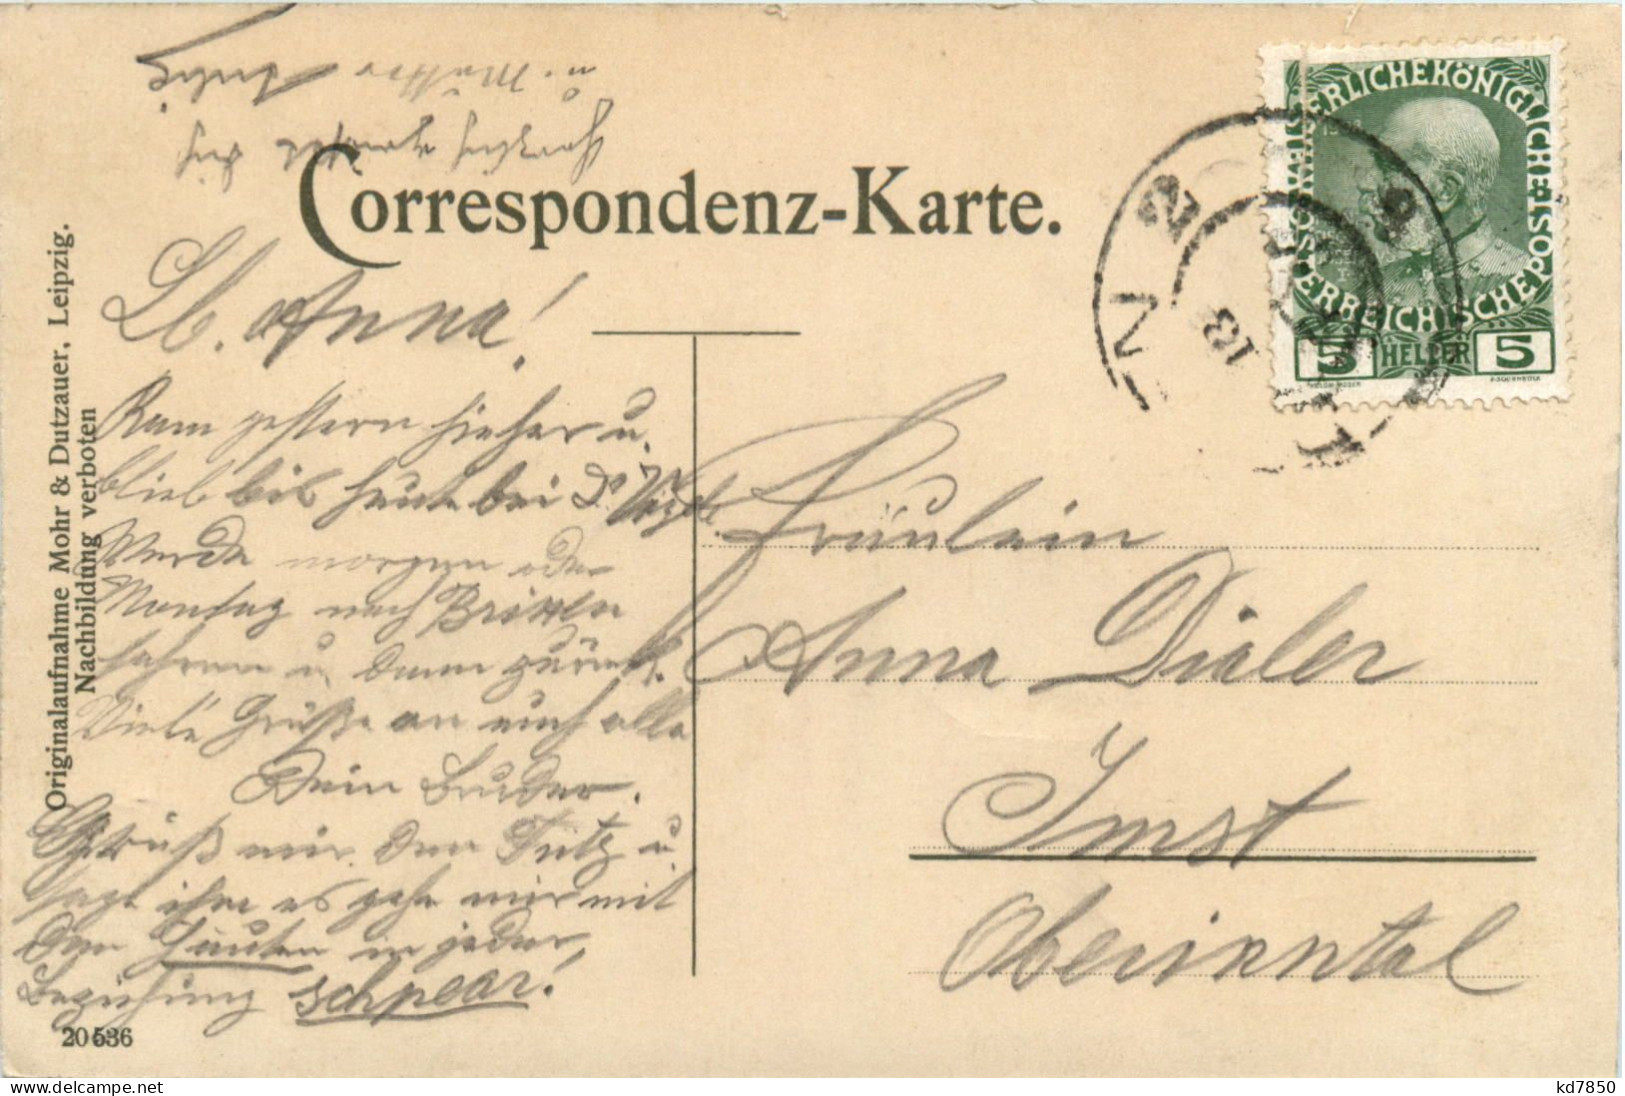 Correspondenz-Karte.
Originalaufnahme Mohr & Dutzauer, Leipzig.
Nachbildung verboten
20536
KAISERLICHEKÖNIGLICHE
ÖSTERREICHISCHE POST
1908
5 HELLER 5
13
Lb. Anna!
Kam gestern hieher u.
blieb bis heute bei Dr
Werde morgen oder
Montag nach Brixlen
fahren u. dann zurück.
Viele Grüße an euch alle
Dein Bruder.
Grüß mir den Fritz u.
sage ihm es gehe mir mit
den in jeder
Beziehung schpear!
Herzlich grüßt dich
u. Mutter
Fräulein
Anna Dialer
Imst
Oberinntal
kd7850